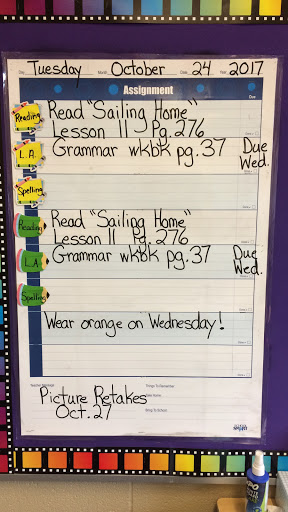 Day Tuesday Month October Date 24 Year 2017
Assignment Due
Reading Read "Sailing Home"
Lesson 11 Pg. 276
L.A. Grammar wkbk pg. 37 Due
Wed.
Spelling
Reading Read "Sailing Home"
Lesson 11 Pg. 276
L.A Grammar wkbk pg. 37 Due
Wed.
Spelling
Wear orange on Wednesday!
Things To Remember
Picture Retakes
Oct. 27
Bring To School
EXPO